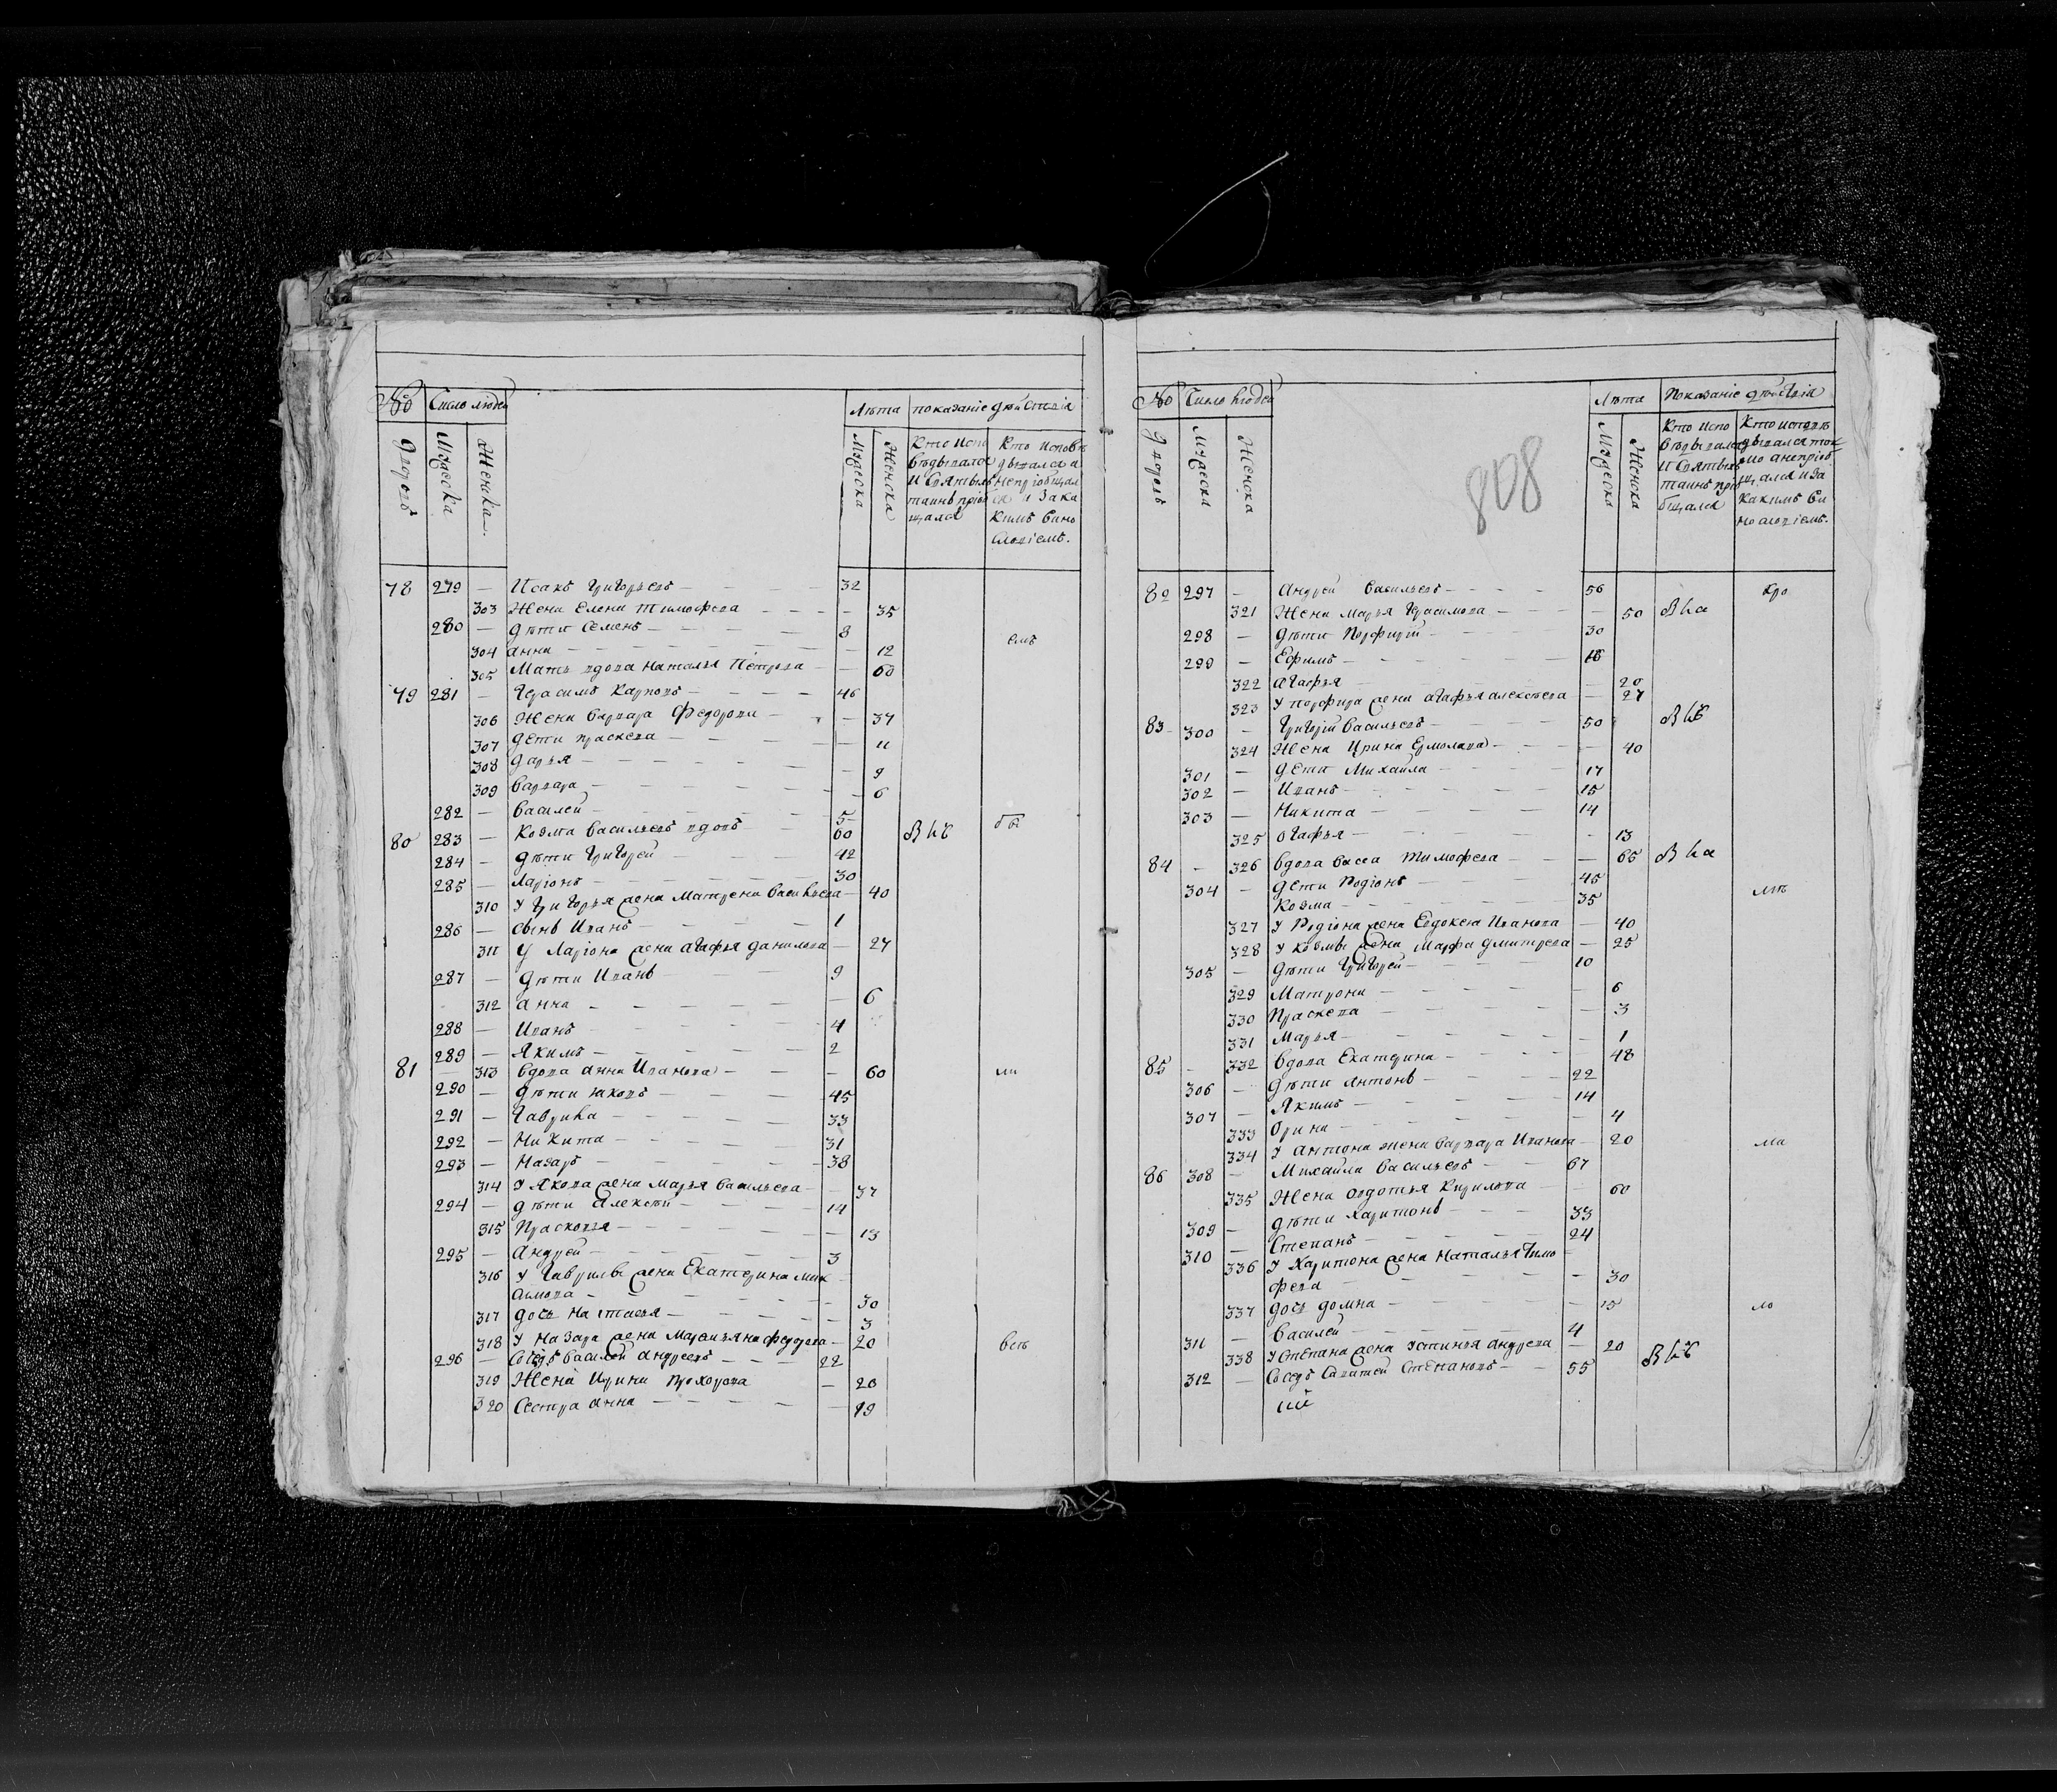 № Число людей Лѣта показаніе дѣйствія
дворовъ Мужеска Женска Мужеска Женска
Кто испо Кто исповѣ
вѣдывался дывался а
и Святыхъ непріобщал
таинъ пріоб ся и за ка
щался кимъ вино
словіемъ.
78 279 — Исакъ Григорьевъ — 32
303 Жена Елена Тимофеева — 35
280 — дѣти Семенъ — 8
304 анна — 12
305 Мать вдова Наталья Петрова — 60
79 281 — Герасимъ Карповъ — 46
306 Жена Варвара Федорова — 37
307 дети праскева — 11
308 дарья — 9
309 Варвара — 6
282 — Василей — 5
80 283 — Козма Васильевъ вдовъ 60
284 — дѣти Григорей — 42
285 — Ларіонъ — 30
310 У Григорья жена Матрена Васильева — 40
286 — сынъ Иванъ — 1
311 У Ларіона жена агафья данилова — 27
287 — дѣти Иванъ 9
312 анна — 6
288 — Иванъ 4
289 — Якимъ — 2
81 — 313 вдова анна Иванова — 60
290 — дѣти яковъ — 45
291 — Гаврила — 33
292 — Никита — 31
293 — Назаръ — 38
314 У Якова жена Марья Васильева — 37
294 — дѣти Алексѣй — 14
315 Прасковья — 13
295 — Андрей — 3
316 У Гаврилы жена Екатерина Мак
симова — 30
317 дочь Настасья — 3
318 У Назара жена Маремьяна федорова — 20
296 — Сосѣдъ Василей андреевъ — 22
319 Жена Ирина Прохорова — 20
320 Сестра анна — 19
№ Число людей Лѣта Показаніе дѣйствія
дворовъ Мужеска Женска Мужеска Женска
Кто испо Кто исповѣ
вѣдывался дывался ток
и Святыхъ мо анепріоб
таинъ пріо щался и за
бщался какимъ ви
нословіемъ.
808
82 297 — Андрей Васильевъ — 56
321 Жена Марья Герасимова — 50
298 — дѣти Порфирій — 30
299 — Ефимъ — 18
322 агафья — 20
323 У порфира жена агафья алексѣева — 27
83 300 — Григорій Васильевъ — 50
324 Жена Ирина Ермолава — 40
301 — дети Михайла — 17
302 — Иванъ — 15
303 — Никита — 14
325 огафья — 13
84 — 326 вдова васса Тимофеева — 65
304 — дети Родіонъ 45
Козма — 35
327 У Родіона жена Евдокея Иванова — 40
328 У козмы жена Марфа дмитреева — 25
305 — дѣти Григорей — 10
329 Матрона — 6
330 Праскева — 3
331 Марья — 1
85 — 332 вдова Екатерина — 48
306 — дѣти Антонъ — 22
307 — Якимъ — 14
333 Орина — 4
334 У Антона жена Варвара Иванова — 20
86 308 — Михайла Васильевъ — 67
335 Жена овдотья Кирилова — 60
309 — дѣти Харитонъ — 33
310 — Степанъ — 24
336 У Харитона жена Наталья Тимо
феева — 30
337 дочь домна — 15
311 — Василей — 4
338 У Степана жена Устинья андреева — 20
312 — Соседъ Савватей Степановъ — 55